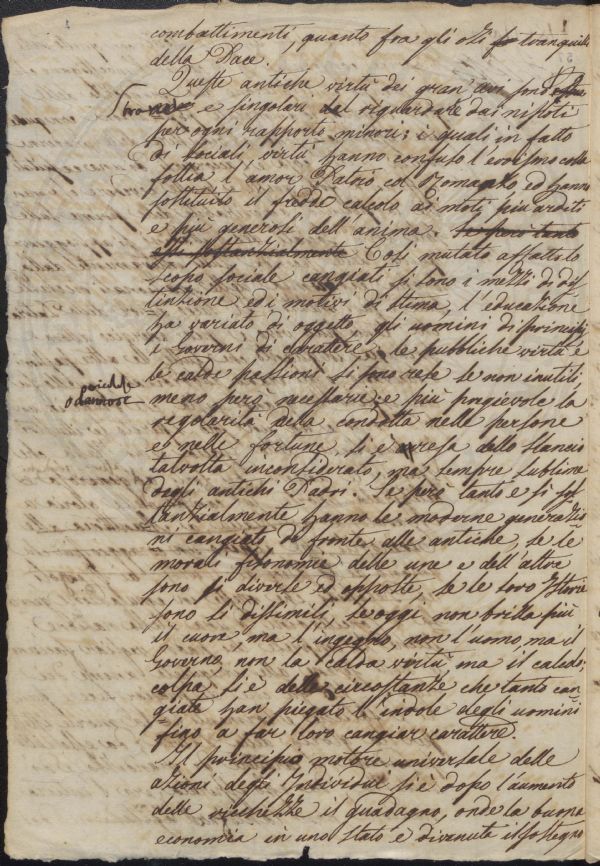 combattimenti, quanto fra gli ozj tranquilli
della Pace.
Queste antiche virtù dei gran avi sono
Strane e singolari al riguardare dai nipoti
per ogni rapporto minori; i quali in fatto
di sociali virtù hanno confuso l'eroismo colla
follia l'amor Patrio col Romanzo, ed hanno
sostituito il freddo calcolo ai moti più arditi
e più generosi dell'anima. Se però tanto
essi sostanzialmente Così mutato affatto lo
scopo sociale cangiati si sono i mezzi di dis
tinzione ed i motivi di stima, l'educazione
ha variato di oggetto, gli uomini di principj
i Governi di carattere, le pubbliche virtù e
le calde passioni si sono rese se non inutili,
o dannose
meno però necessarie, e più pregievole la
regolarità della condotta nelle persone
e nelle fortune si è resa dello slancio
talvolta inconsiderato, ma sempre sublime
degli antichi Padri. Se però tanto e sì sos
tanzialmente hanno le moderne generazio
ni cangiato di fronte alle antiche, se le
morali fisonomie delle une e dell'altra
sono sì diverse ed opposte, se le loro Istorie
sono sì dissimili, se oggi non brilla più
il cuore ma l'ingegno, non l'uomo, ma il
Governo, non la calda virtù ma il calcolo
colpa si è delle circostanze che tanto can
giate han piegato l'indole degli uomini
fino a far loro cangiar carattere.
Il principio motore universale delle
azioni degli Individui si è dopo l'aumento
delle ricchezze il guadagno, onde la buona
economia in uno stato è divenuta il sostegno